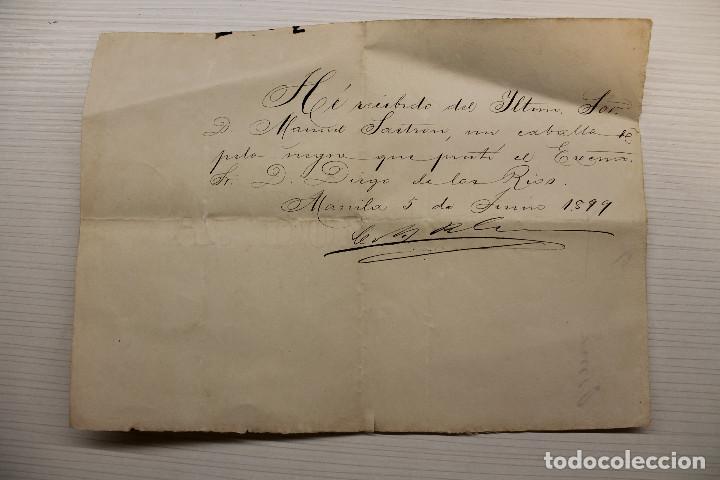 Hé recibido del Iltmo. Sor.
D. Manuel Sastrón, un caballo de
pelo negro que prestó el Excmo.
Sr. D. Diego de los Rios.
Manila 5 de Junio 1899
todocoleccion.net